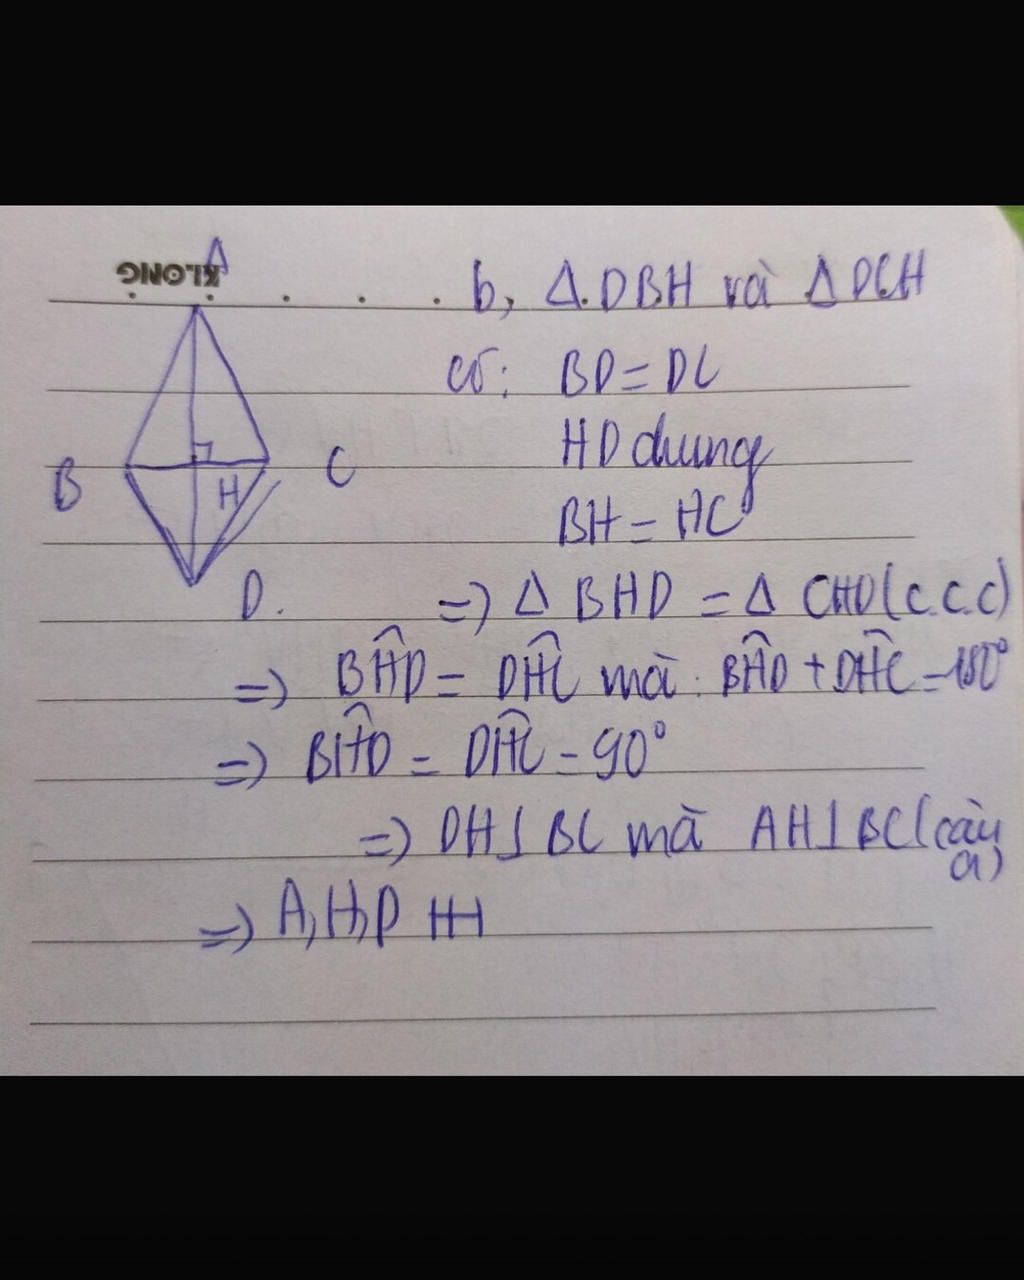 KLONG
A
B
C
H
D.
b, Δ.DBH và ΔDCH
có: BD=DC
HD chung
BH=HC
=) Δ BHD = Δ CHD(c.c.c)
=) BĤD = DĤC mà: BĤD + DĤC = 180°
=) BĤD = DĤC = 90°
=) DH⊥BC mà AH⊥BC(câu a)
=) A,H,D